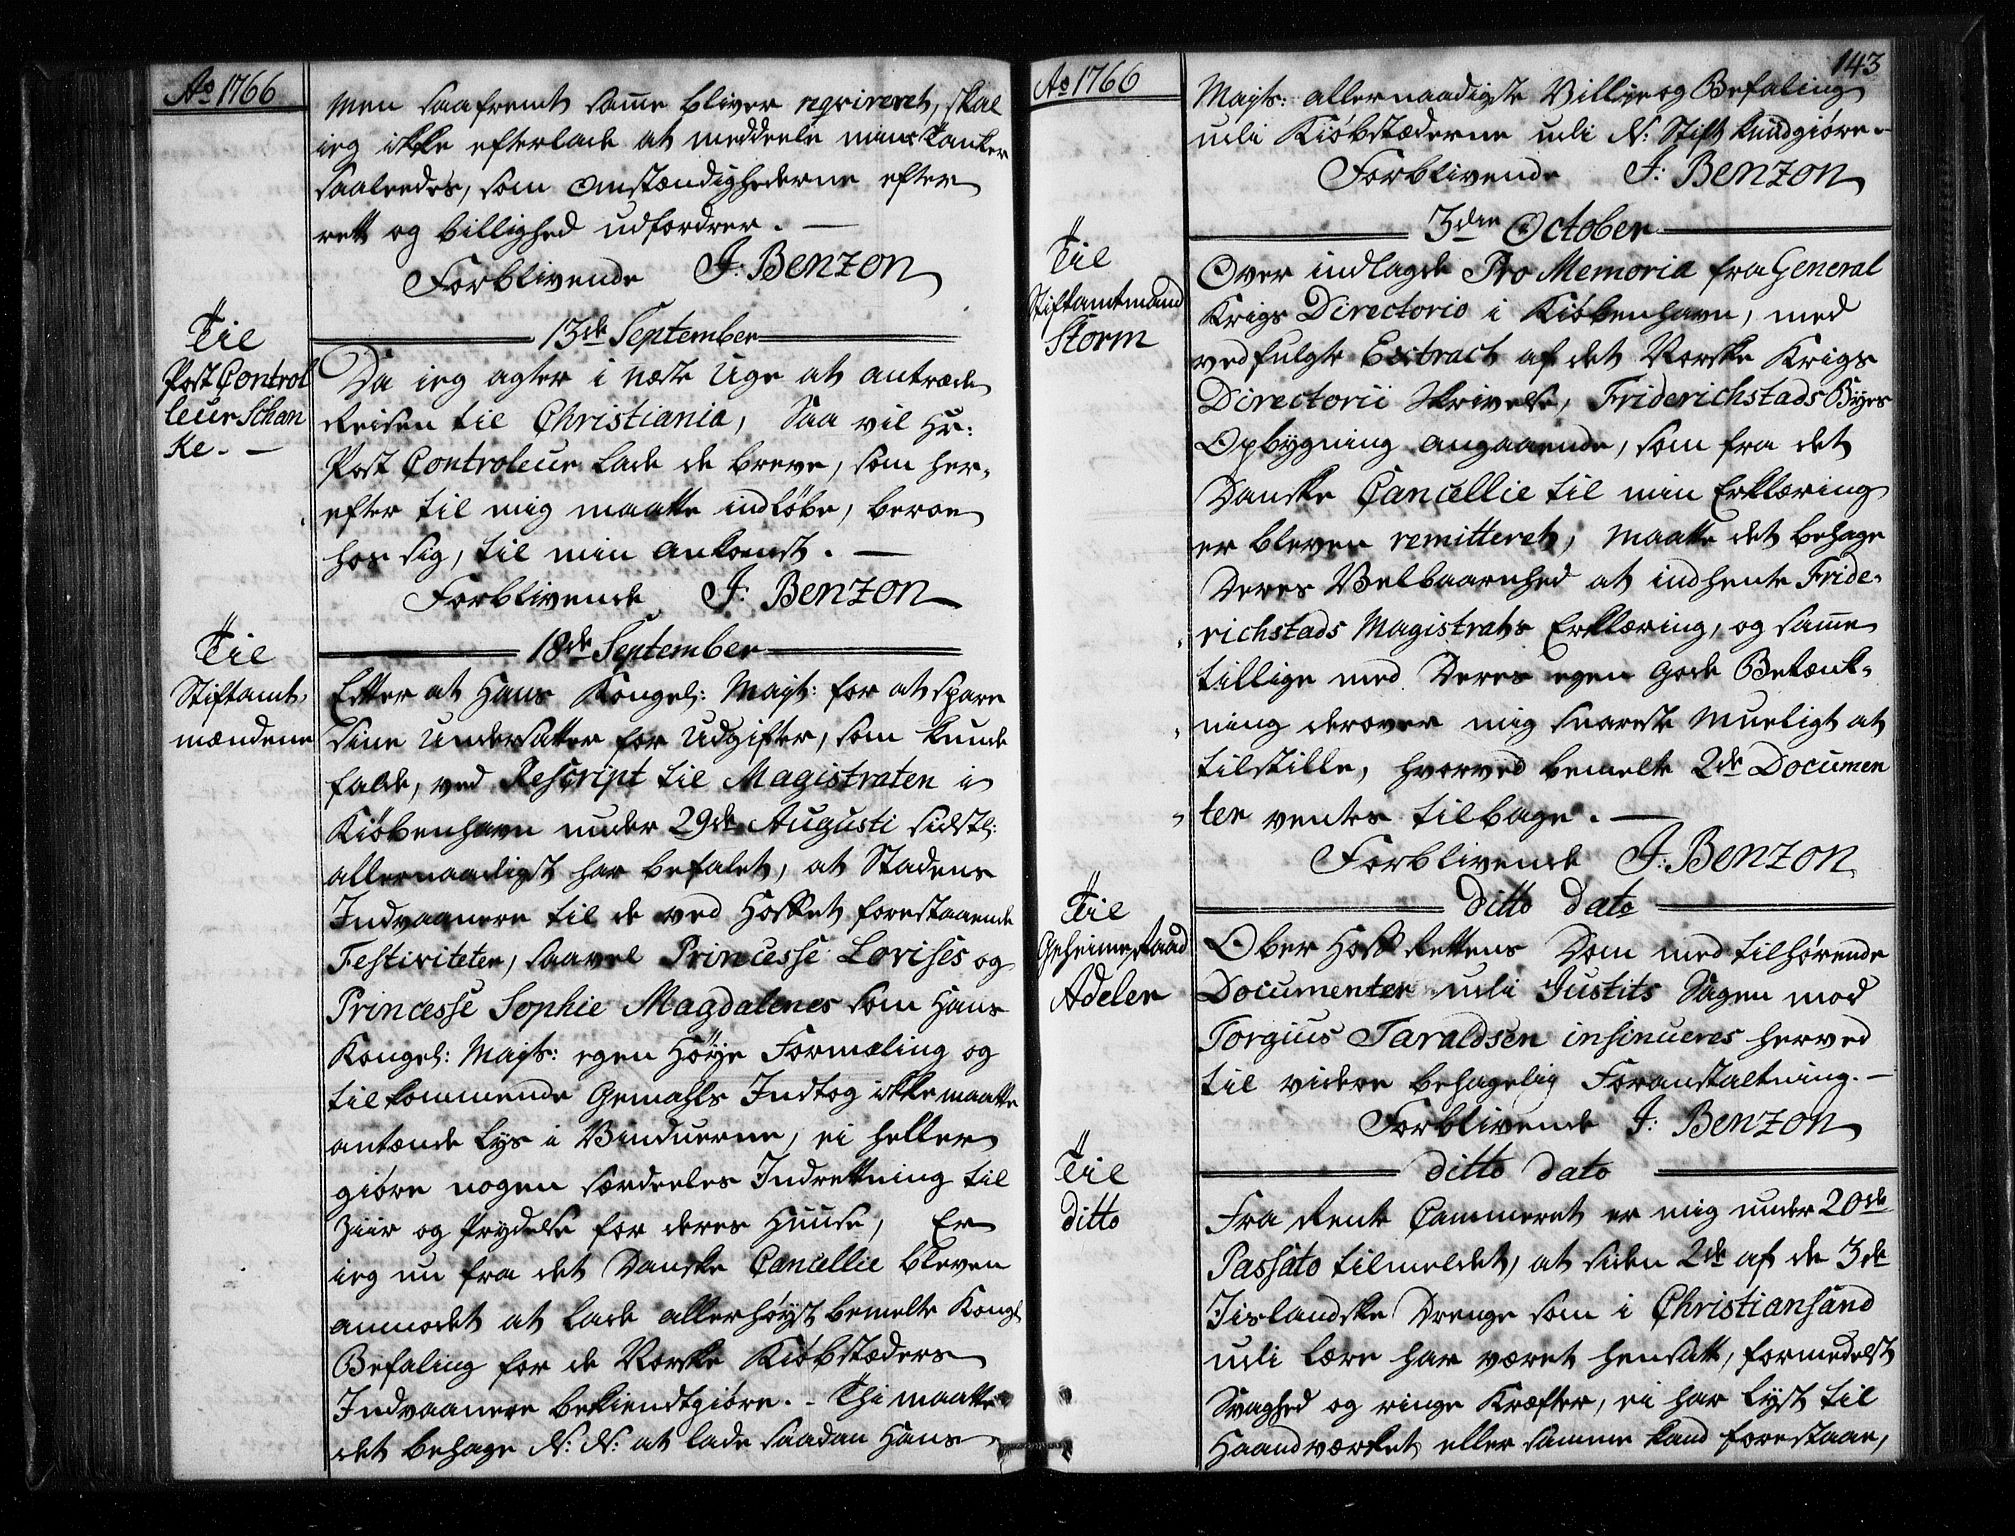 Ao 1766
Men saafremt same bliver reqvireret, skal
ieg ikke efterlade at meddeele mine Tanker
saaleedes, som Omstændighederne efter
rett og billighed udfordrer. —
Forblivende J: Benzon
Til
Post Control
leur Schan
ke. —
13de September
Da ieg agter i næste Uge at antræde
Reisen til Christiania, Saa vil Hr:
Post Controleur lade de breve, som her-
efter til mig maatte indløbe, beroe
hos sig, til min ankomst. —
Forblivende J: Benzon
Til
Stiftamt-
mændene
18de September
Efter at Hans Kongel: Mayt: for at spare
sine Undersatter for Udgifter, som kunde
falde, ved Rescript til Magistraten i
Kiøbenhavn under 29de Augusti sidstl:
allernaadigst har befalet, at Stadens
Indvaanere til de ved Hoffet forestaaende
Festiviteter, saavel Princesse Lovises og
Princesse Sophie Magdalenes som Hans
Kongel: Mayts: egen Høye Formæling og
tilkommende Gemahls Indtog ikke maatte
antænde Lys i Vinduerne, ei heller
giøre nogen særdeeles Indrettning til
Ziir og Prydelse for deres Huuse, Er
ieg nu fra det Danske Cancellie bleven
anmodet at lade allerhøyst bemelte Kongl
Befaling for de Norske Kiøbstæders
Indvaanere bekiendtgiøre. - Thi maatte
det behage N: N: at lade saadan Hans
Ao 1766
143
Mayts: allernaadigste Villie og Befaling
udi Kiøbstæderne udi N: Stift kundgiøre. -
Forblivende J: Benzon
Til
Stiftamtmand
Storm
3den October
Over indlagde Pro Memoria fra General
Krigs Directorio i Kiøbenhavn, med
vedfulgte Extract af det Norske Krigs
Directorii Skrivelse, Friderichstads Byes
Opbygning angaaende, som fra det
Danske Cancellie til min Erklæring
er bleven remitteret, Maatte det behage
Deres Velbaarenhed at indhente Fride-
richstads Magistrats Erklæring, og same
tillige med Deres egen gode Betænk-
ning derover mig snareste mueligt at
tilstille, hvorved bemelte 2de Documen
ter ventes tilbage. —
Forblivende J: Benzon
Til
Geheimeraad
Adeler
ditto dato
Ober Hoff Rettens Dom med tilhørende
Documenter udi Justits Sagen mod
Torgius Taraldsen insinueres herved
til videre behagelig Foranstaltning. —
Forblivende J: Benzon
Til
ditto
ditto dato
Fra Rente Cammeret er mig under 20de
Passato tilmeldet, at siden 2de af de 3de
Iislandske Drenge som i Christiansand
udi Lære har været hensatt, formedelst
Svaghed og ringe Kræfter, ei har Lyst til
Haandværket eller samme kand forestaae,